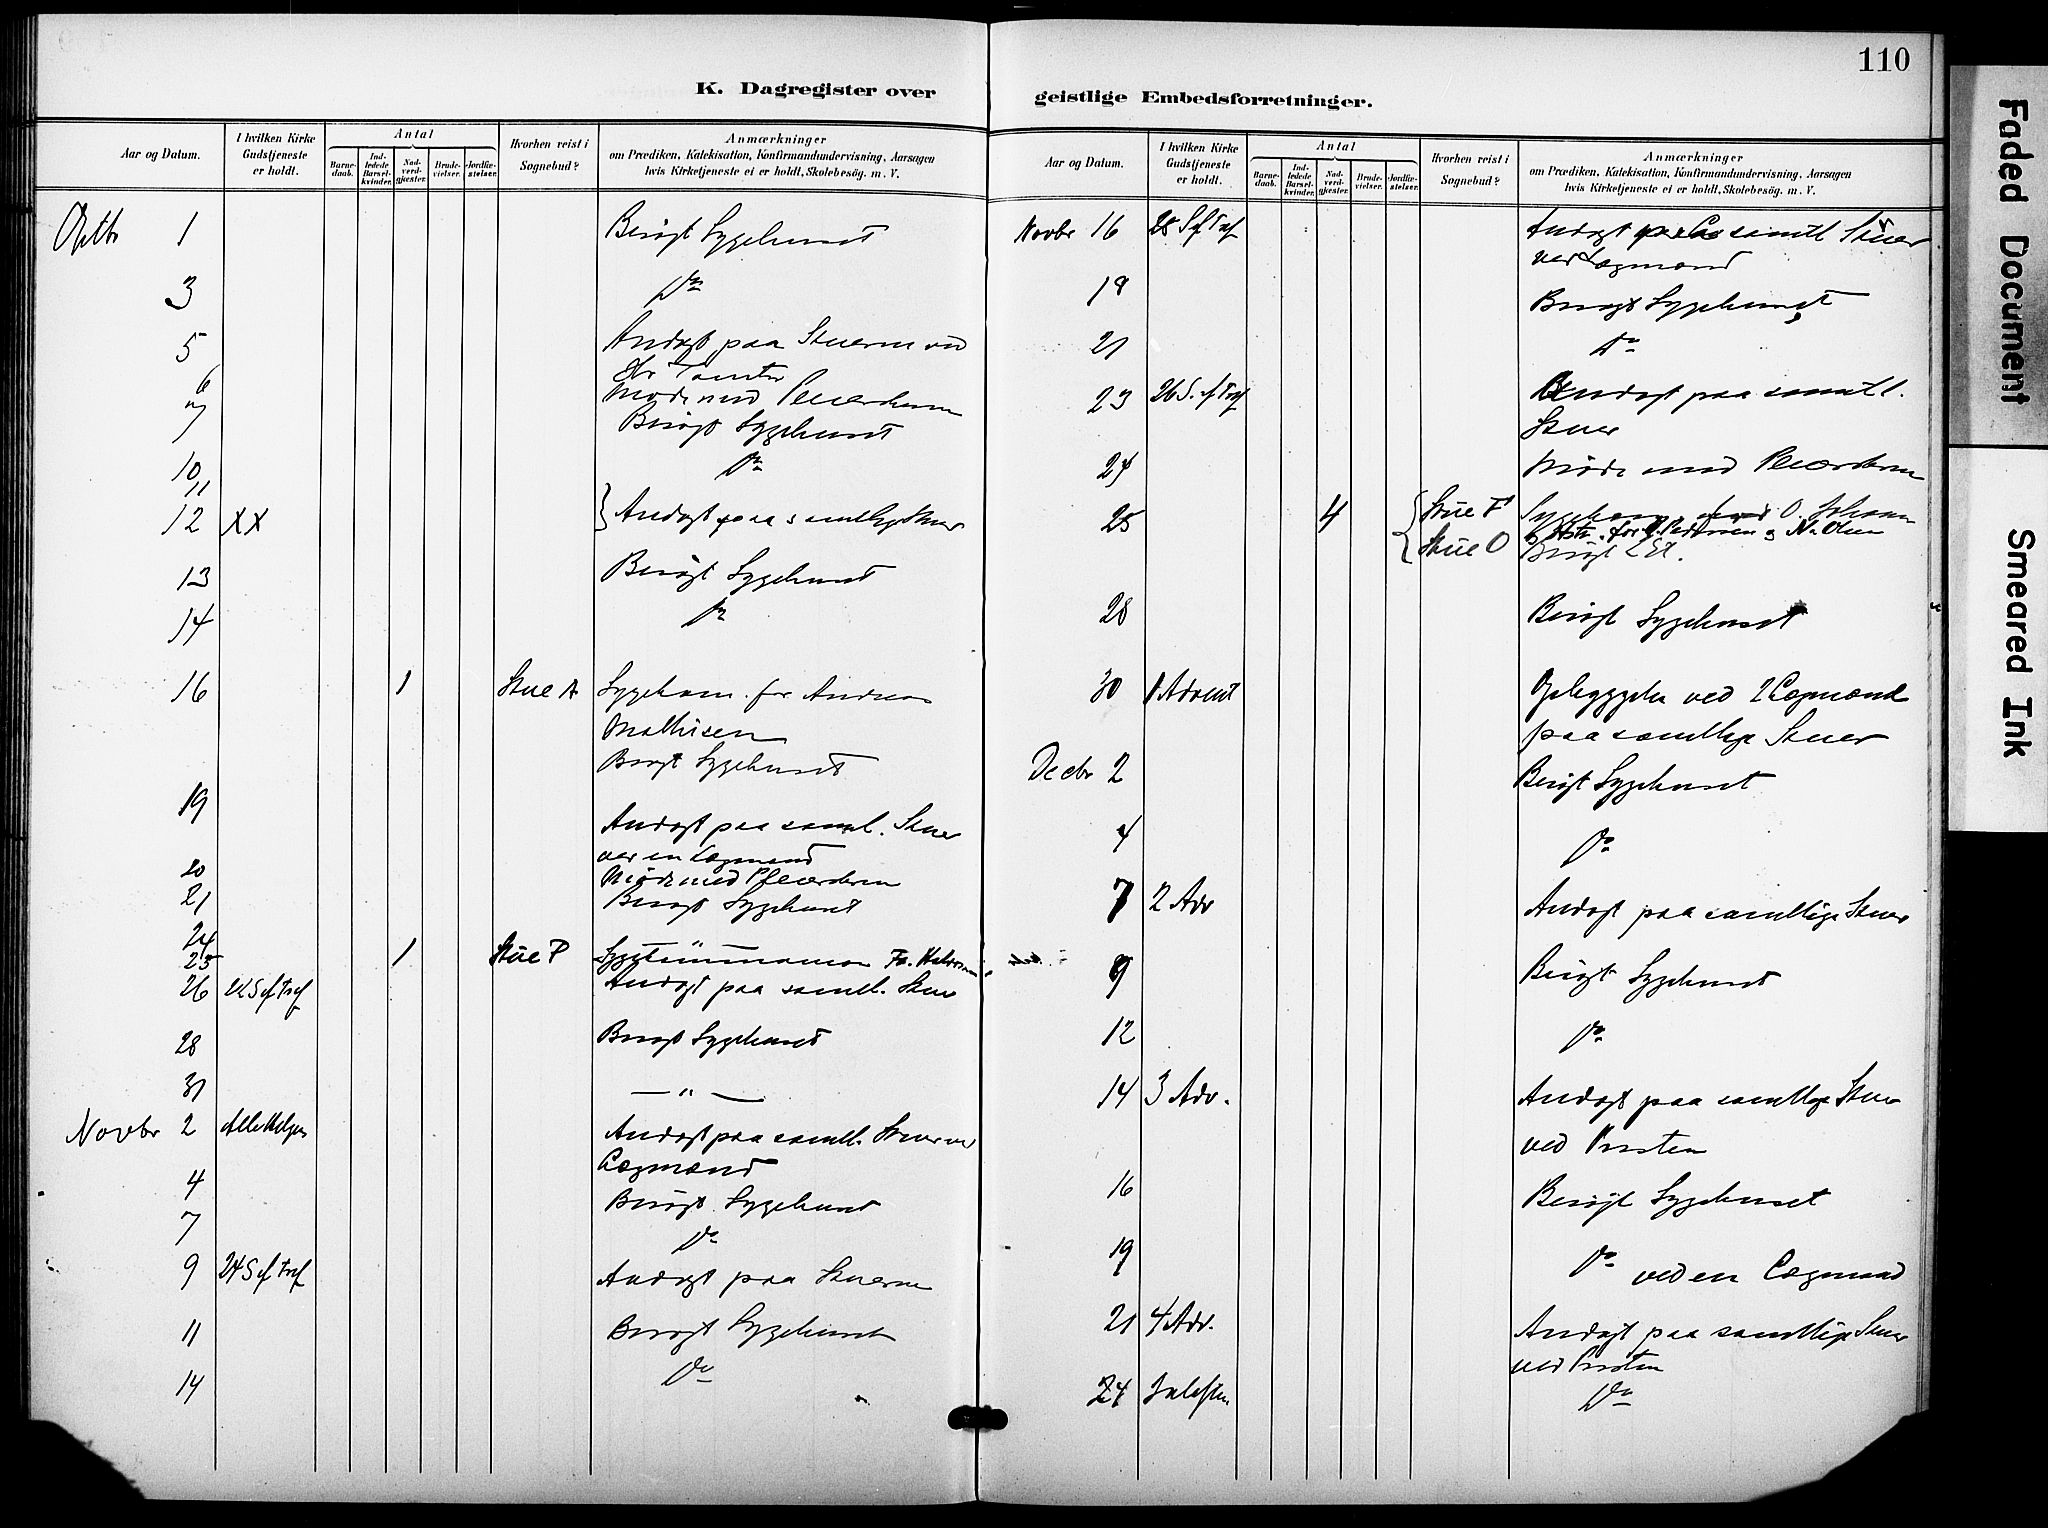 110
K. Dagregister over geistlige Embedsforretninger.
Aar og Datum. I hvilken Kirke Gudstjeneste er holdt. Antal Barnedaab. Indledede Barselkvinder. Nadverdgjæster. Brudevielser. Jordfæstelser. Hvorhen reist i Sognebud? Anmærkninger om Prædiken, Katekisation, Konfirmandundervisning, Aarsagen hvis Kirketjeneste ei er holdt, Skolebesøg. m. V.
1 Besøgt Sygehuset
3 Do
5 Andagt paa Stuerne ved
Hr
6 Møde med Plejerskerne
7 Besøgt Sygehuset
10 Do
11
12 XX Andagt paa samtlige Stuer
13 Besøgt Sygehuset
14 Do
16 1 Stue A Sygekom. for Andreas
Mathisen
Besøgt Sygehuset
19 Andagt paa samtl. Stuer
ved en Lægmand
20 Møde med Plejerskerne
21 Besøgt Sygehuset
24
25 1 Stue P
26 22 S ef Tref Andagt paa samtl. Stuer
28 Besøgt Sygehuset
31 — " —
Novbr 2 Allehelgen Andagt paa samtl. Stuer ved
Lægmænd
4 Besøgt Sygehuset
7 Do
9 24 S ef Tref Andagt paa Stuerne
11 Besøgt Sygehuset
14 Do
Aar og Datum. I hvilken Kirke Gudstjeneste er holdt. Antal Barnedaab. Indledede Barselkvinder. Nadverdgjæster. Brudevielser. Jordfæstelser. Hvorhen reist i Sognebud? Anmærkninger om Prædiken, Katekisation, Konfirmandundervisning, Aarsagen hvis Kirketjeneste ei er holdt, Skolebesøg. m. V.
Novbr 16 25 S ef Tref Andagt paa samtl Stuer
ved Lægmænd
19 Besøgt Sygehuset
21 Do
23 26 S. ef Tref Andagt paa samtl.
Stuer
24 Møde med Plejerskerne
25 4 Stue F Sygekom. O. Johansen
Stue O for Pedersen og N. Olsen
Besøgt
28 Besøgt Sygehuset
30 1 Advent Opbyggelse ved 2 Lægmænd
paa samtlige Stuer
Decbr 2 Besøgt Sygehuset
4 Do
7 2 Adv Andagt paa samtlige Stuer
9 Besøgt Sygehuset
12 Do
14 3 Adv. Andagt paa samtlige Stuer
ved Presten
16 Besøgt Sygehuset
19 Do ved en Lægmand
21 4 Adv. Andagt paa samtlige Stuer
ved Presten
24 Juleften Do
Faded Document
Smeared Ink